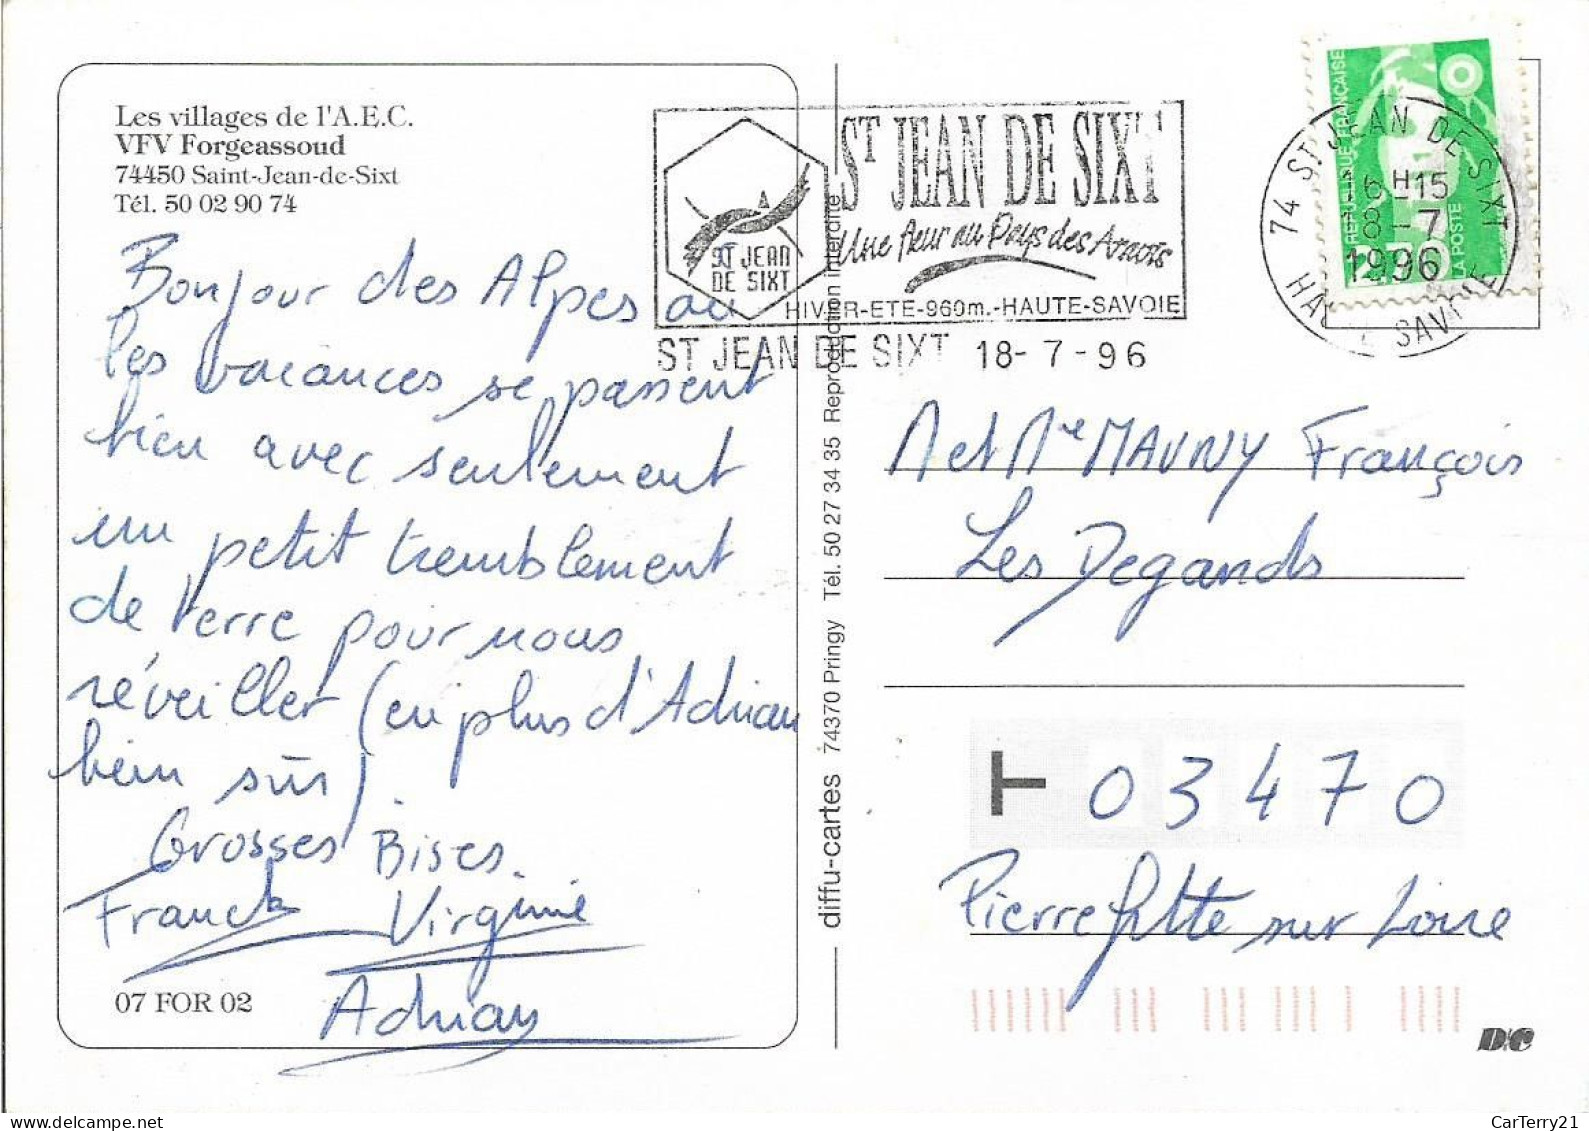 Les villages de l'A.E.C.
VFV Forgeassoud
74450 Saint-Jean-de-Sixt
Tél. 50 02 90 74
Bonjour des Alpes ou
les vacances se passent
bien avec seulement
un petit tremblement
de terre pour nous
réveiller (en plus d'Adrian
bien sûr).
Grosses Bises.
Franck Virginie
Adrian
07 FOR 02
diffu-cartes 74370 Pringy Tél. 50 27 34 35 Reproduction interdite
ST JEAN DE SIXT
Une fleur au Pays des Aravis
ST JEAN
DE SIXT
HIVER-ETE-960m.-HAUTE-SAVOIE
ST JEAN DE SIXT 18-7-96
REPUBLIQUE FRANÇAISE
LA POSTE
74 ST JEAN DE SIXT
16 H 15
18-7
1996
HAUTE SAVOIE
M et Me MAUNY François
Les Degands
T 03470
Pierrefitte sur Loire
D/C
CarTerry21